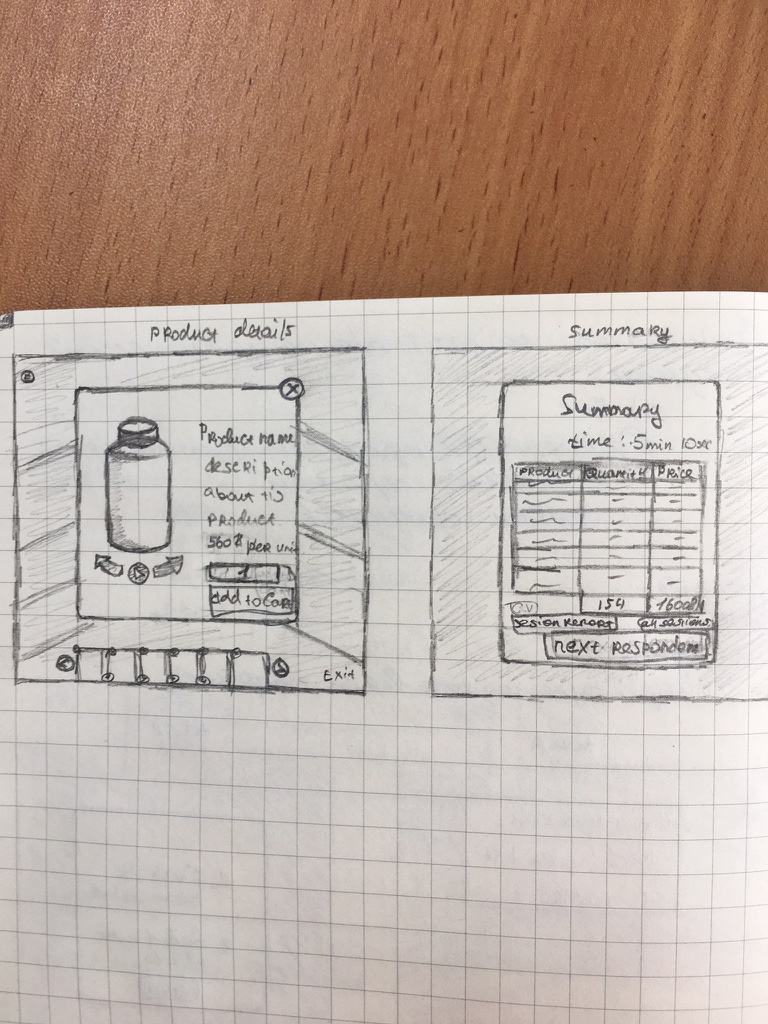 Product details
Product name
description
about tis
product
560$ per unit
1
add to Cart
Exit
Summary
Summary
time : 5min 10sec
Product Quantity Price
154
Sesion report
all sesions
next responden